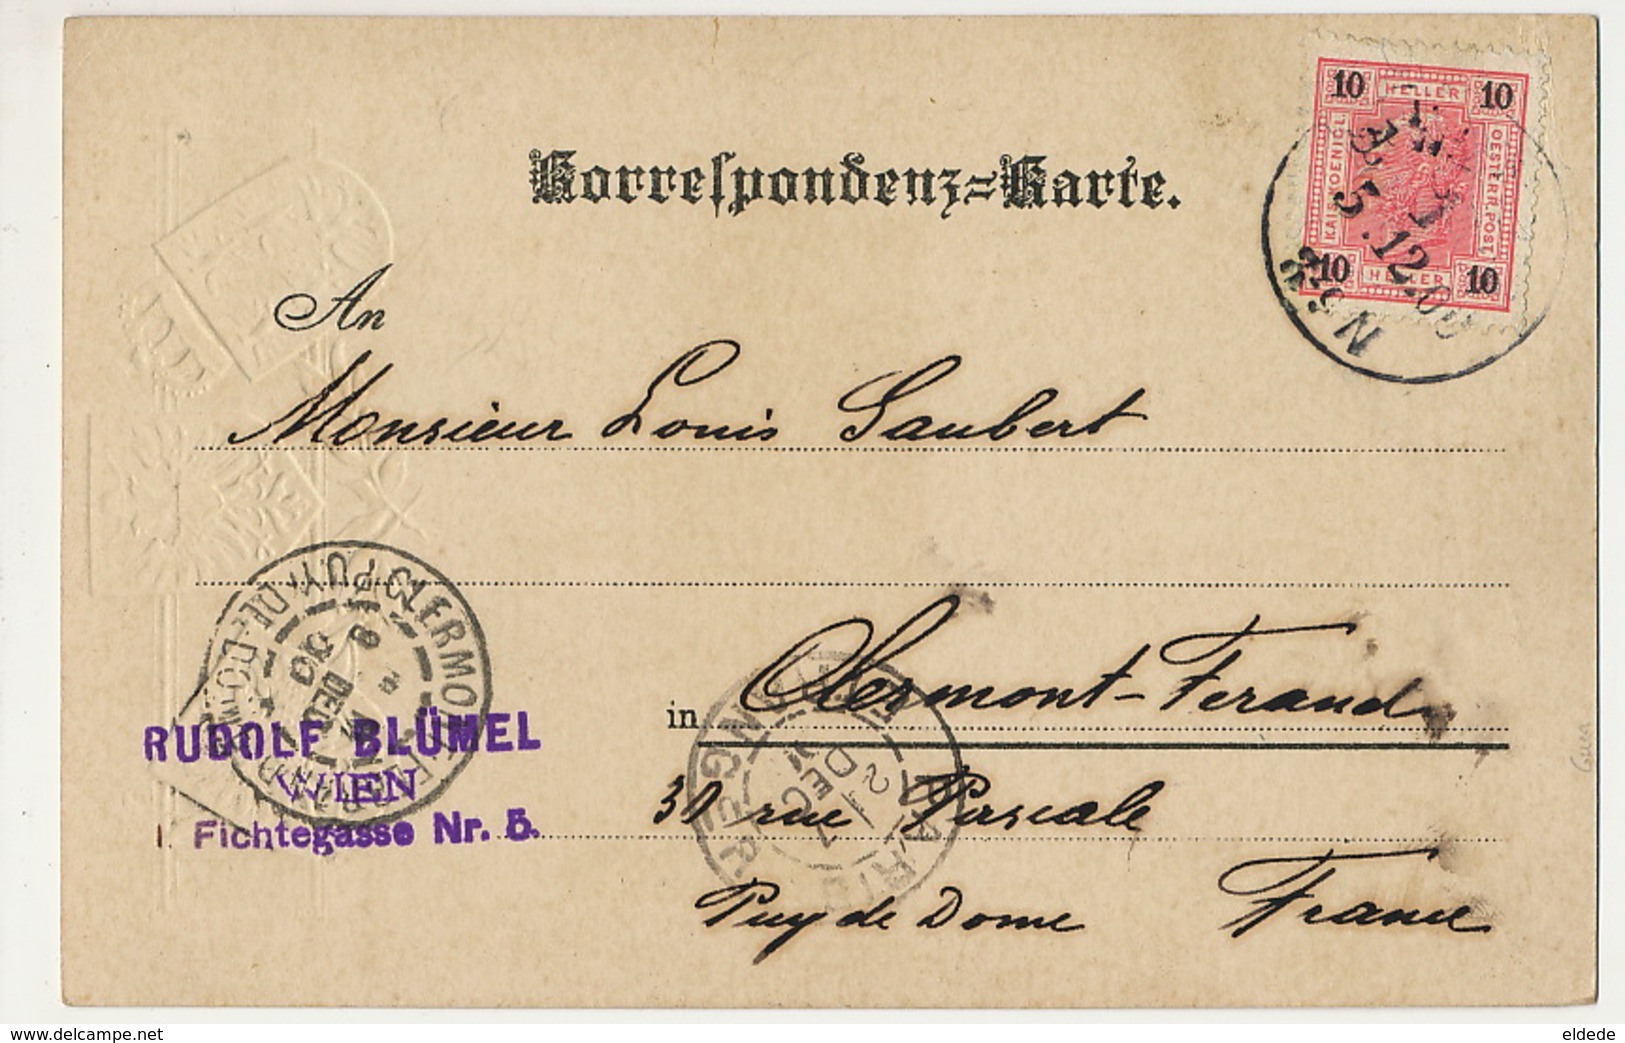 Korrespondenz-Karte.
10 HELLER 10
KAIS. KOENIGL.
OESTERR. POST
10 HELLER 10
5.12.00
An
Monsieur Louis Saubert
in Clermont-Ferand
30 rue Pascale
Puy de Dome France
CLERMONT-FERRAND
PUY-DE-DOME
8 DEC 00
ETRANGER
PARIS
7 DEC
RUDOLF BLÜMEL
WIEN
I. Fichtegasse Nr. 5.
www.delcampe.net
eldede